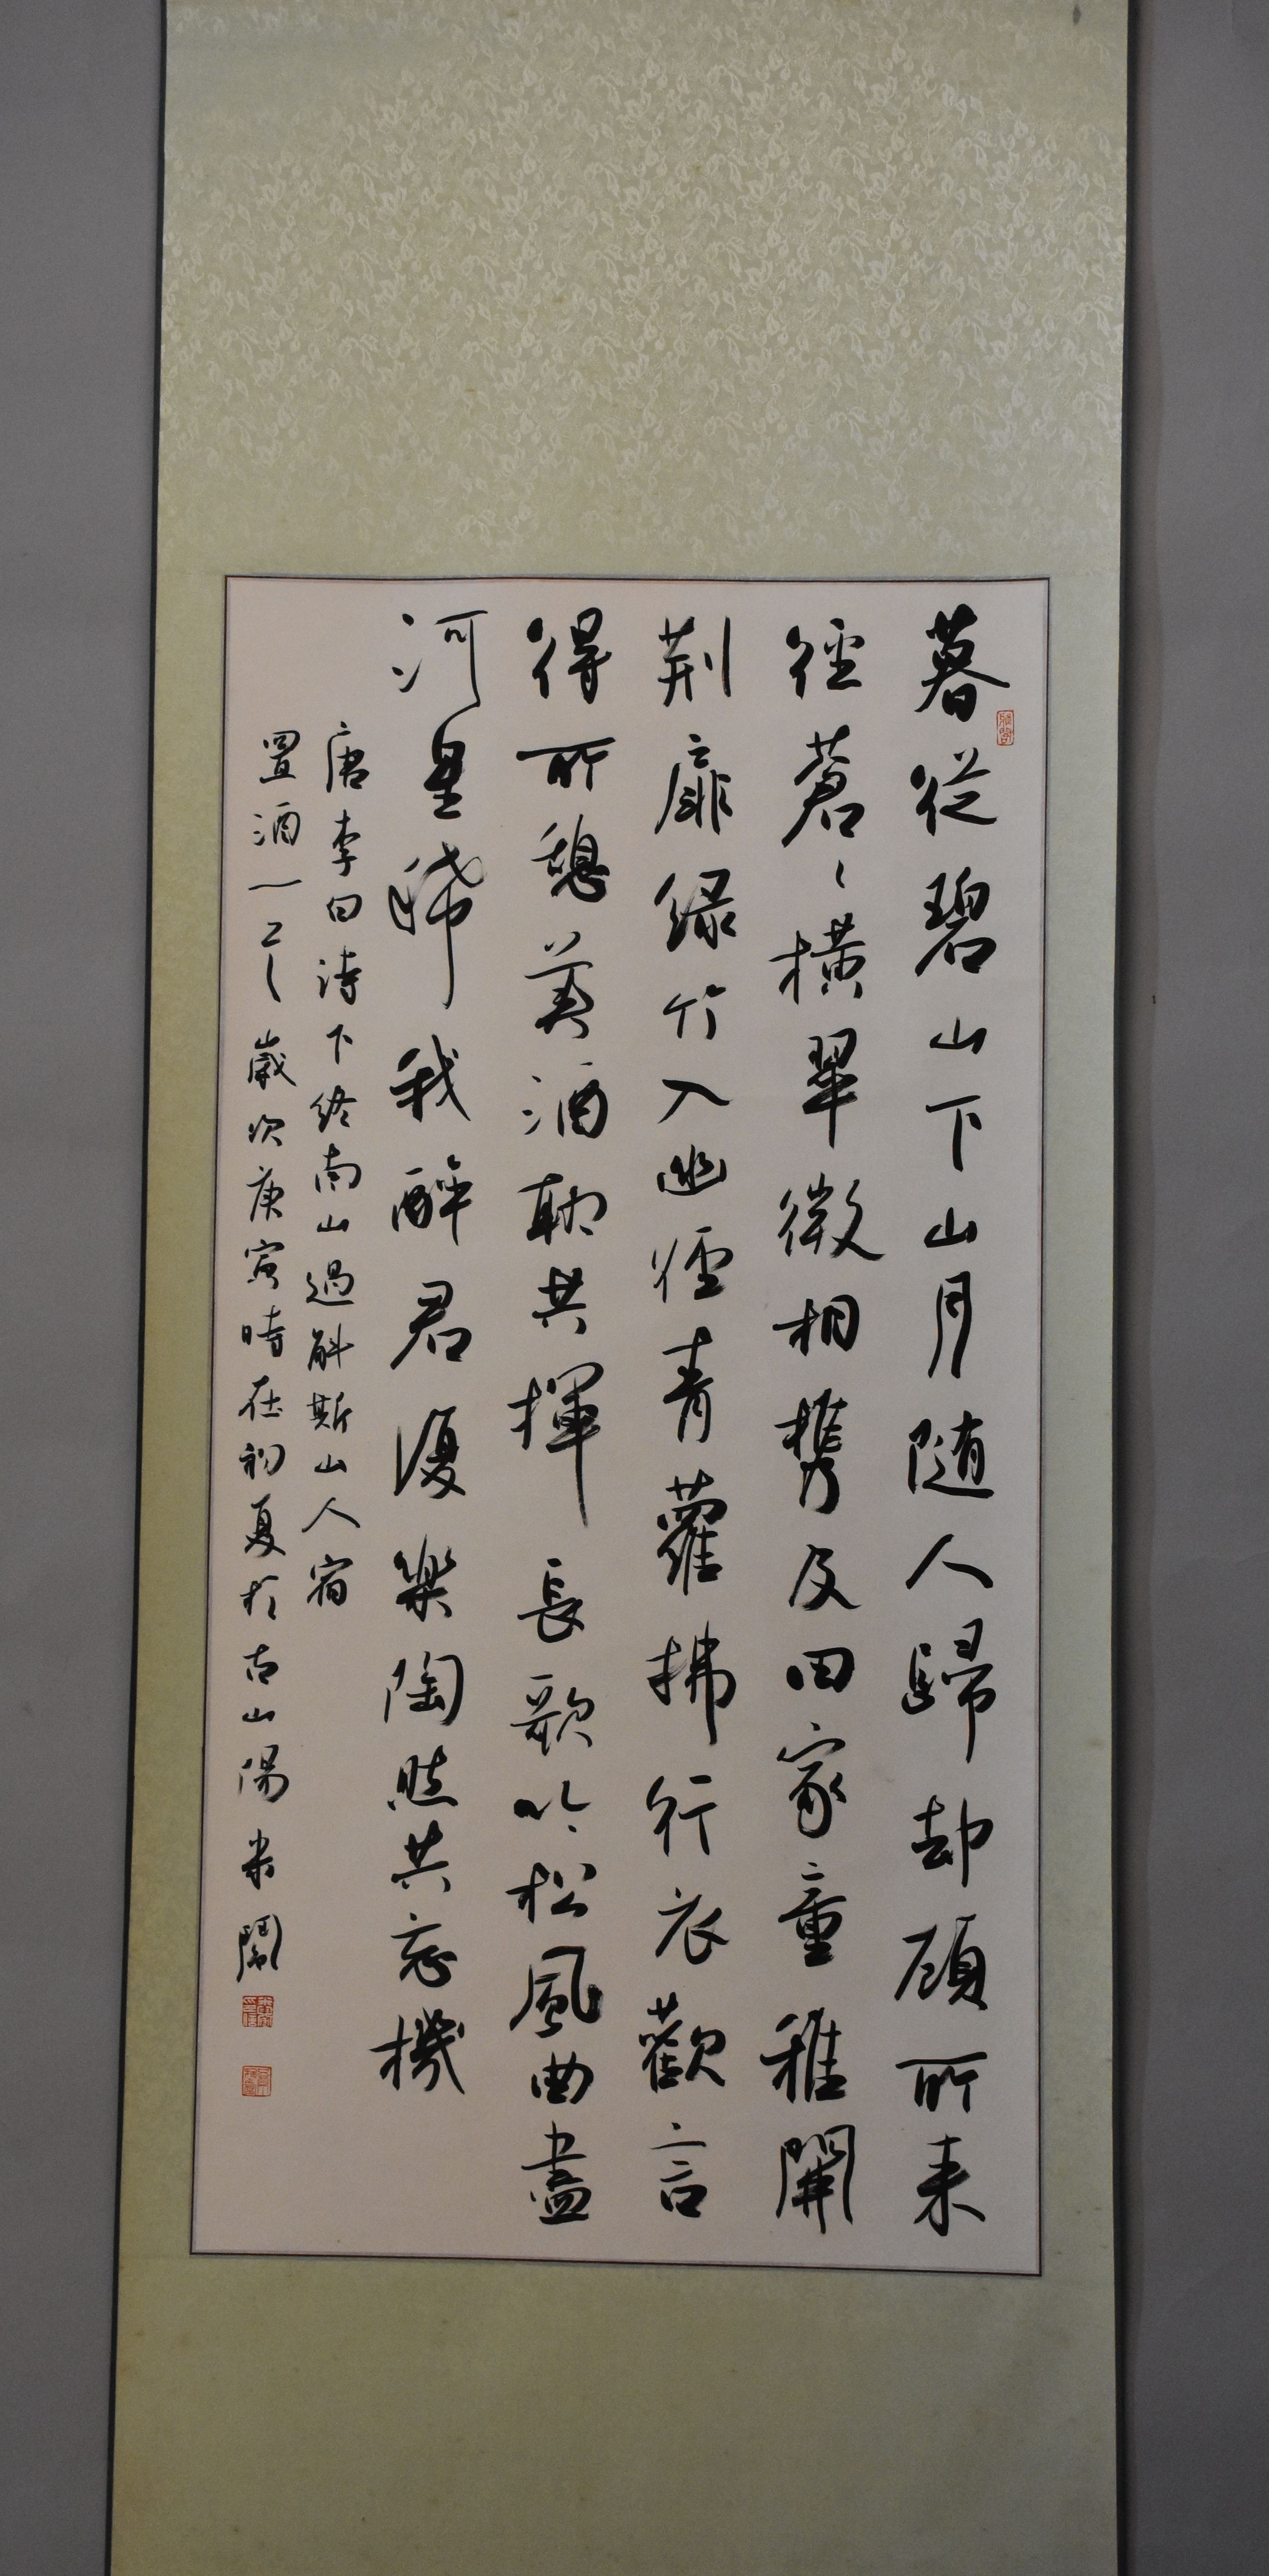 暮從碧山下山月随人歸却顧所来
徑蒼々橫翠微相携及田家童稚開
荆扉绿竹入幽徑青蘿拂行衣歡言
得所憩美酒聊共揮長歌吟松風曲盡
河星稀我醉君復樂陶然共忘機
唐李白诗下终南山過斛斯山人宿
置酒一 歲次庚寅時在初夏於古山陽 米鬧